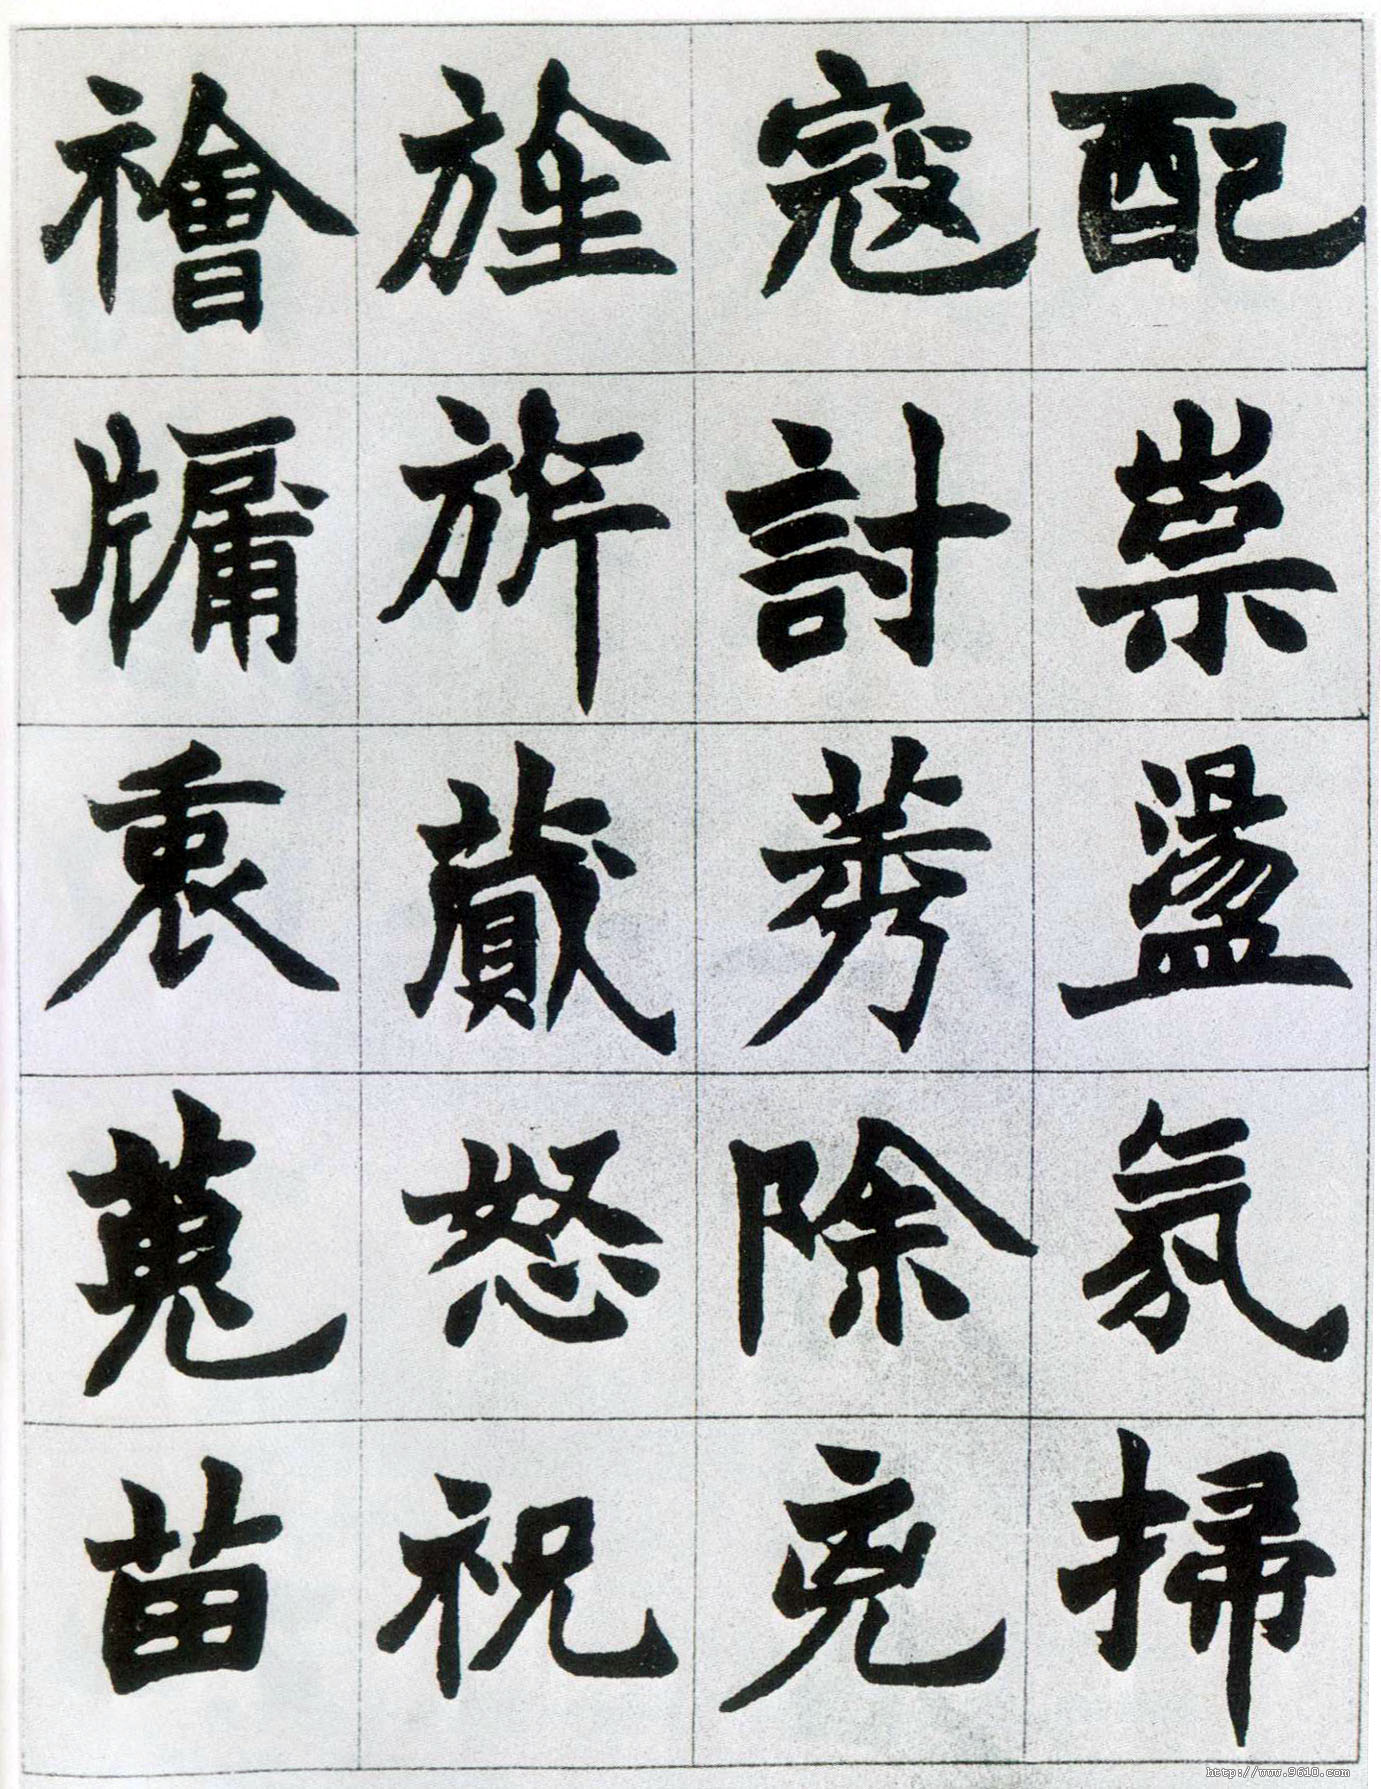 配祟盪氛掃
寇討莠除兇
旌旂蕆怒祝
禬牖衷蒐苗
http://www.9610.com